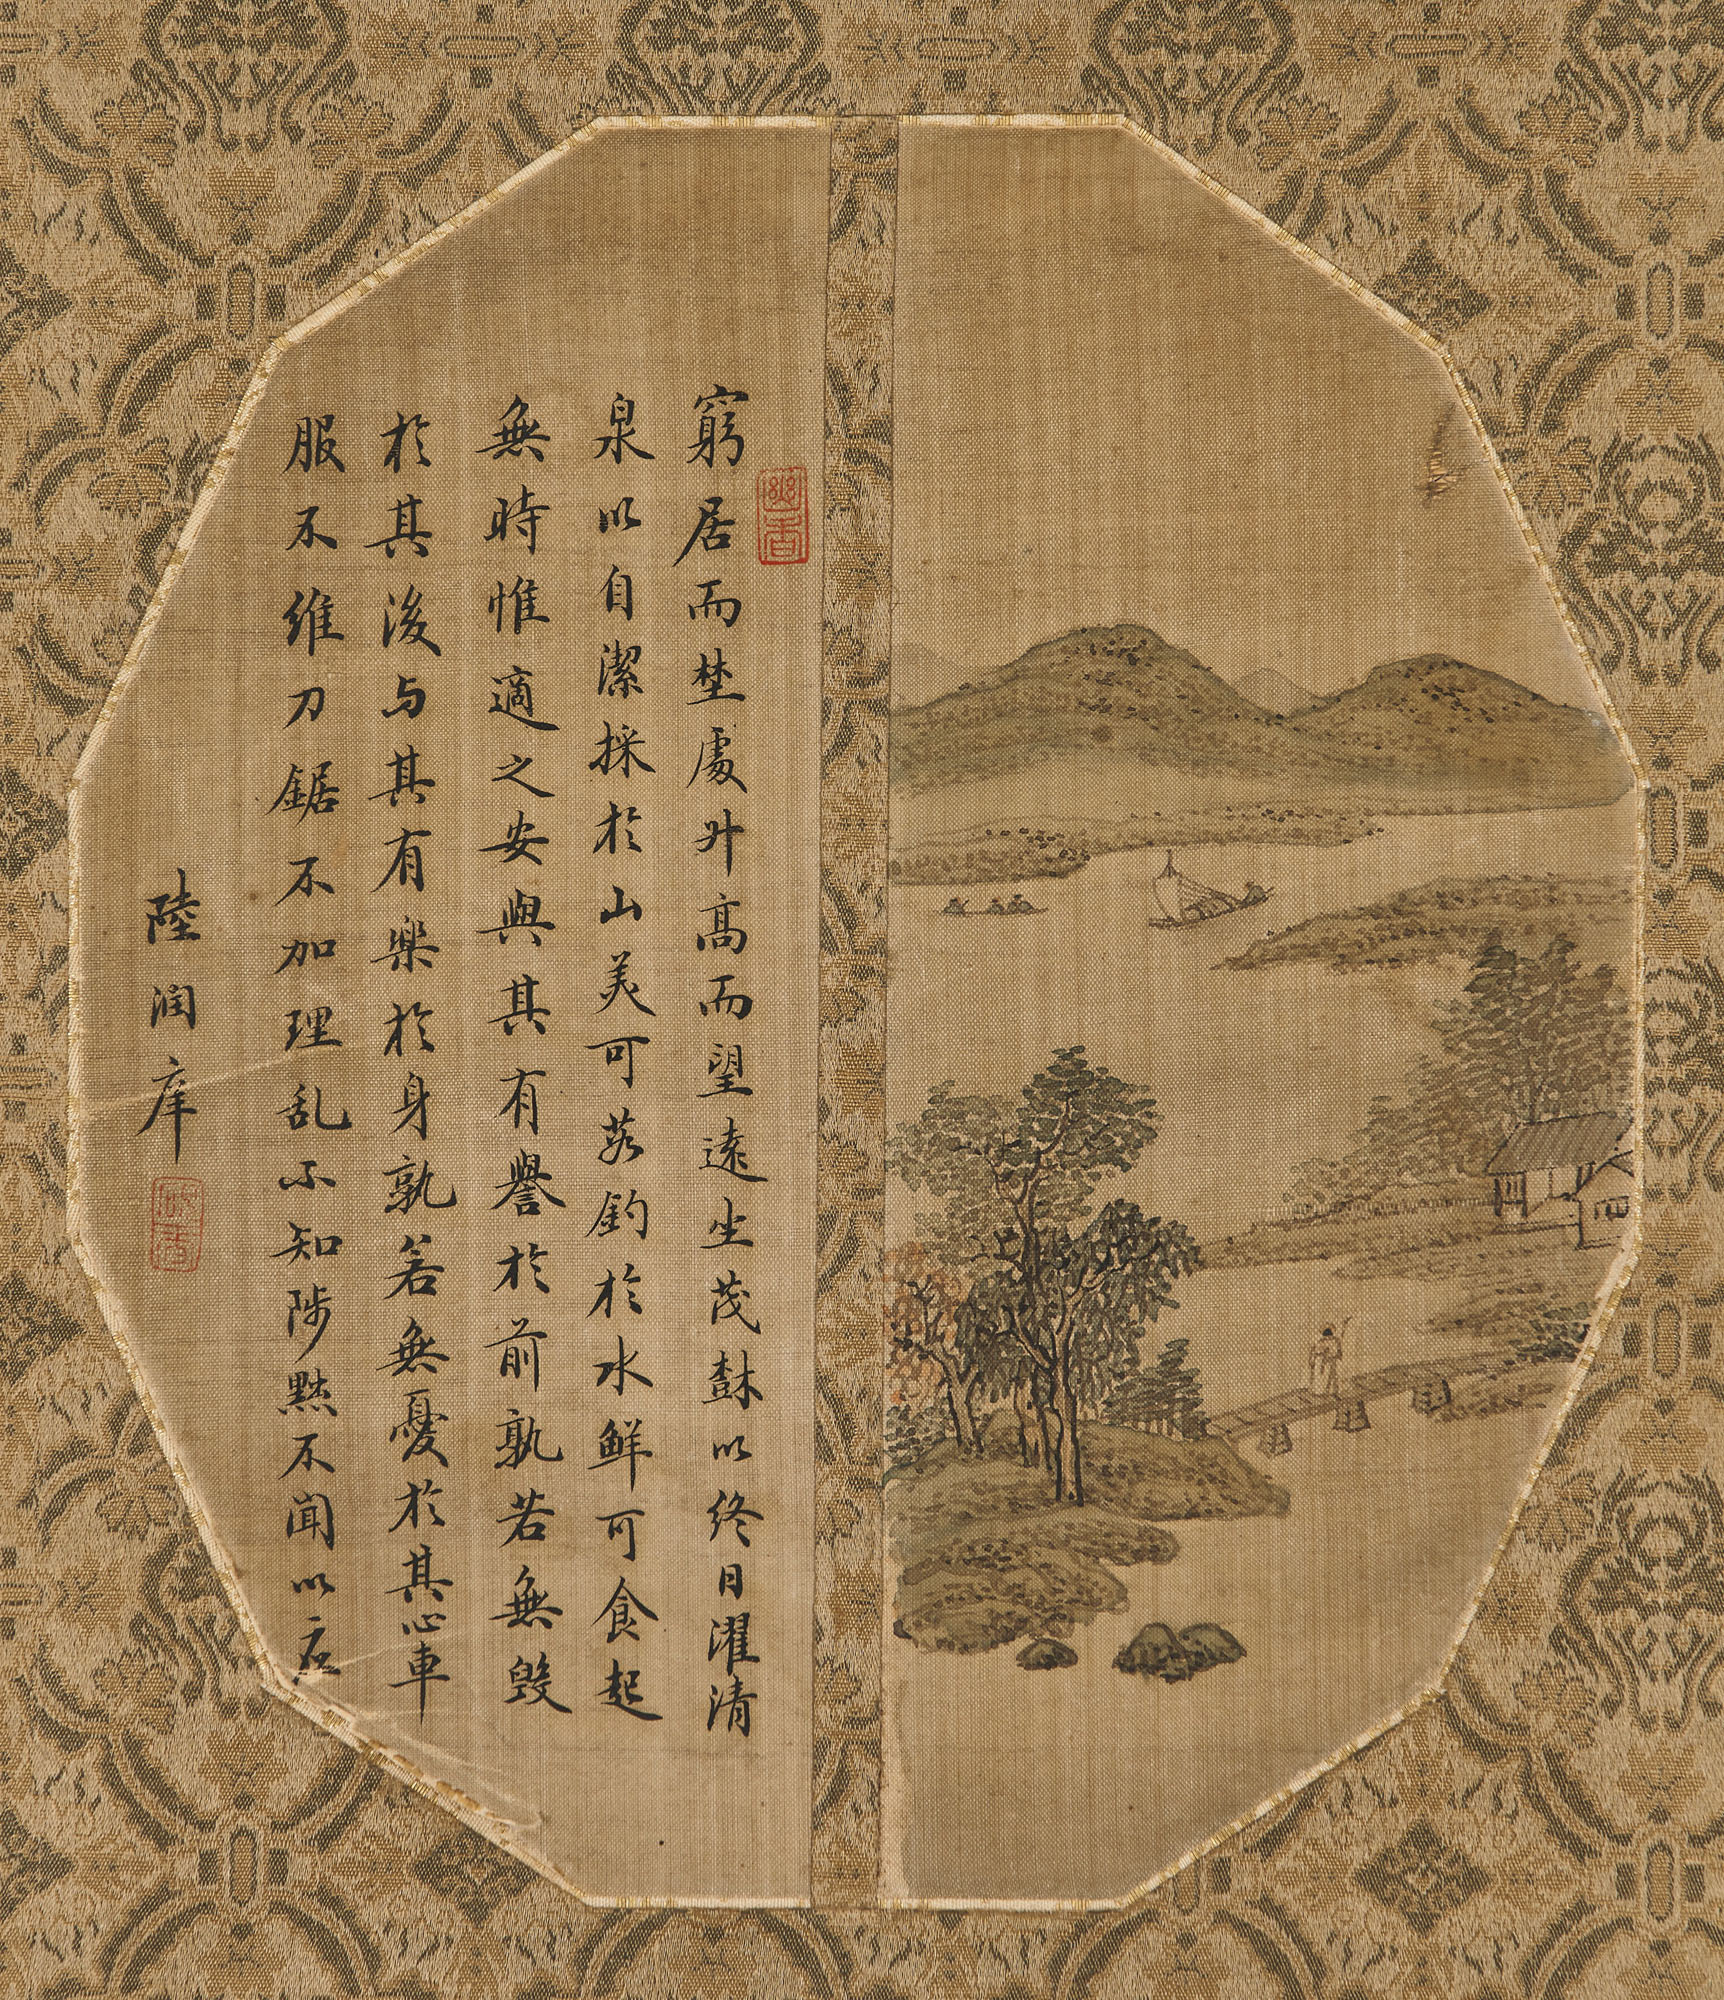 窮居而埜處升高而望遠坐茂樹以終日濯清
泉以自潔採於山美可茹釣於水鮮可食起
無時惟適之安與其有譽於前孰若無毀
於其後与其有樂於身孰若無憂於其心車
服不維刀鋸不加理乱不知陟黜不聞以
陸潤庠
幽香